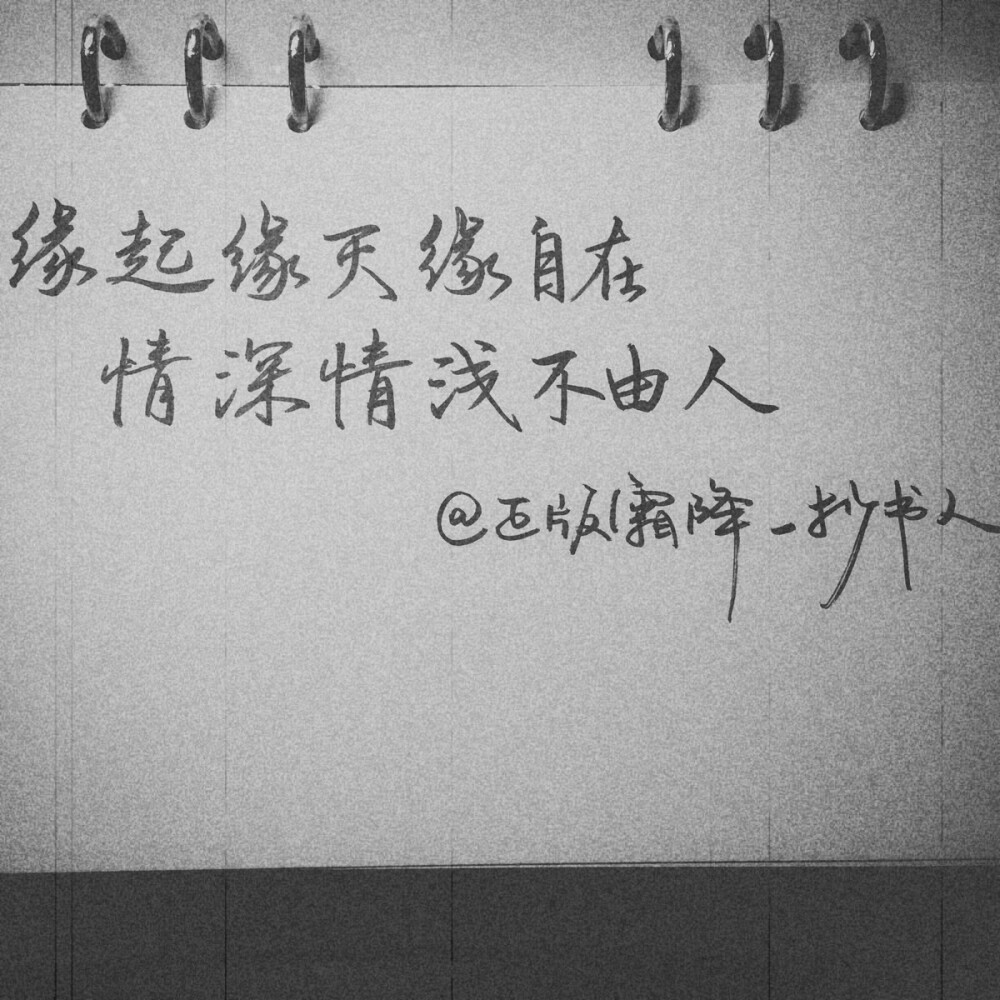 缘起缘灭缘自在
情深情浅不由人
@正版霜降_抄书人